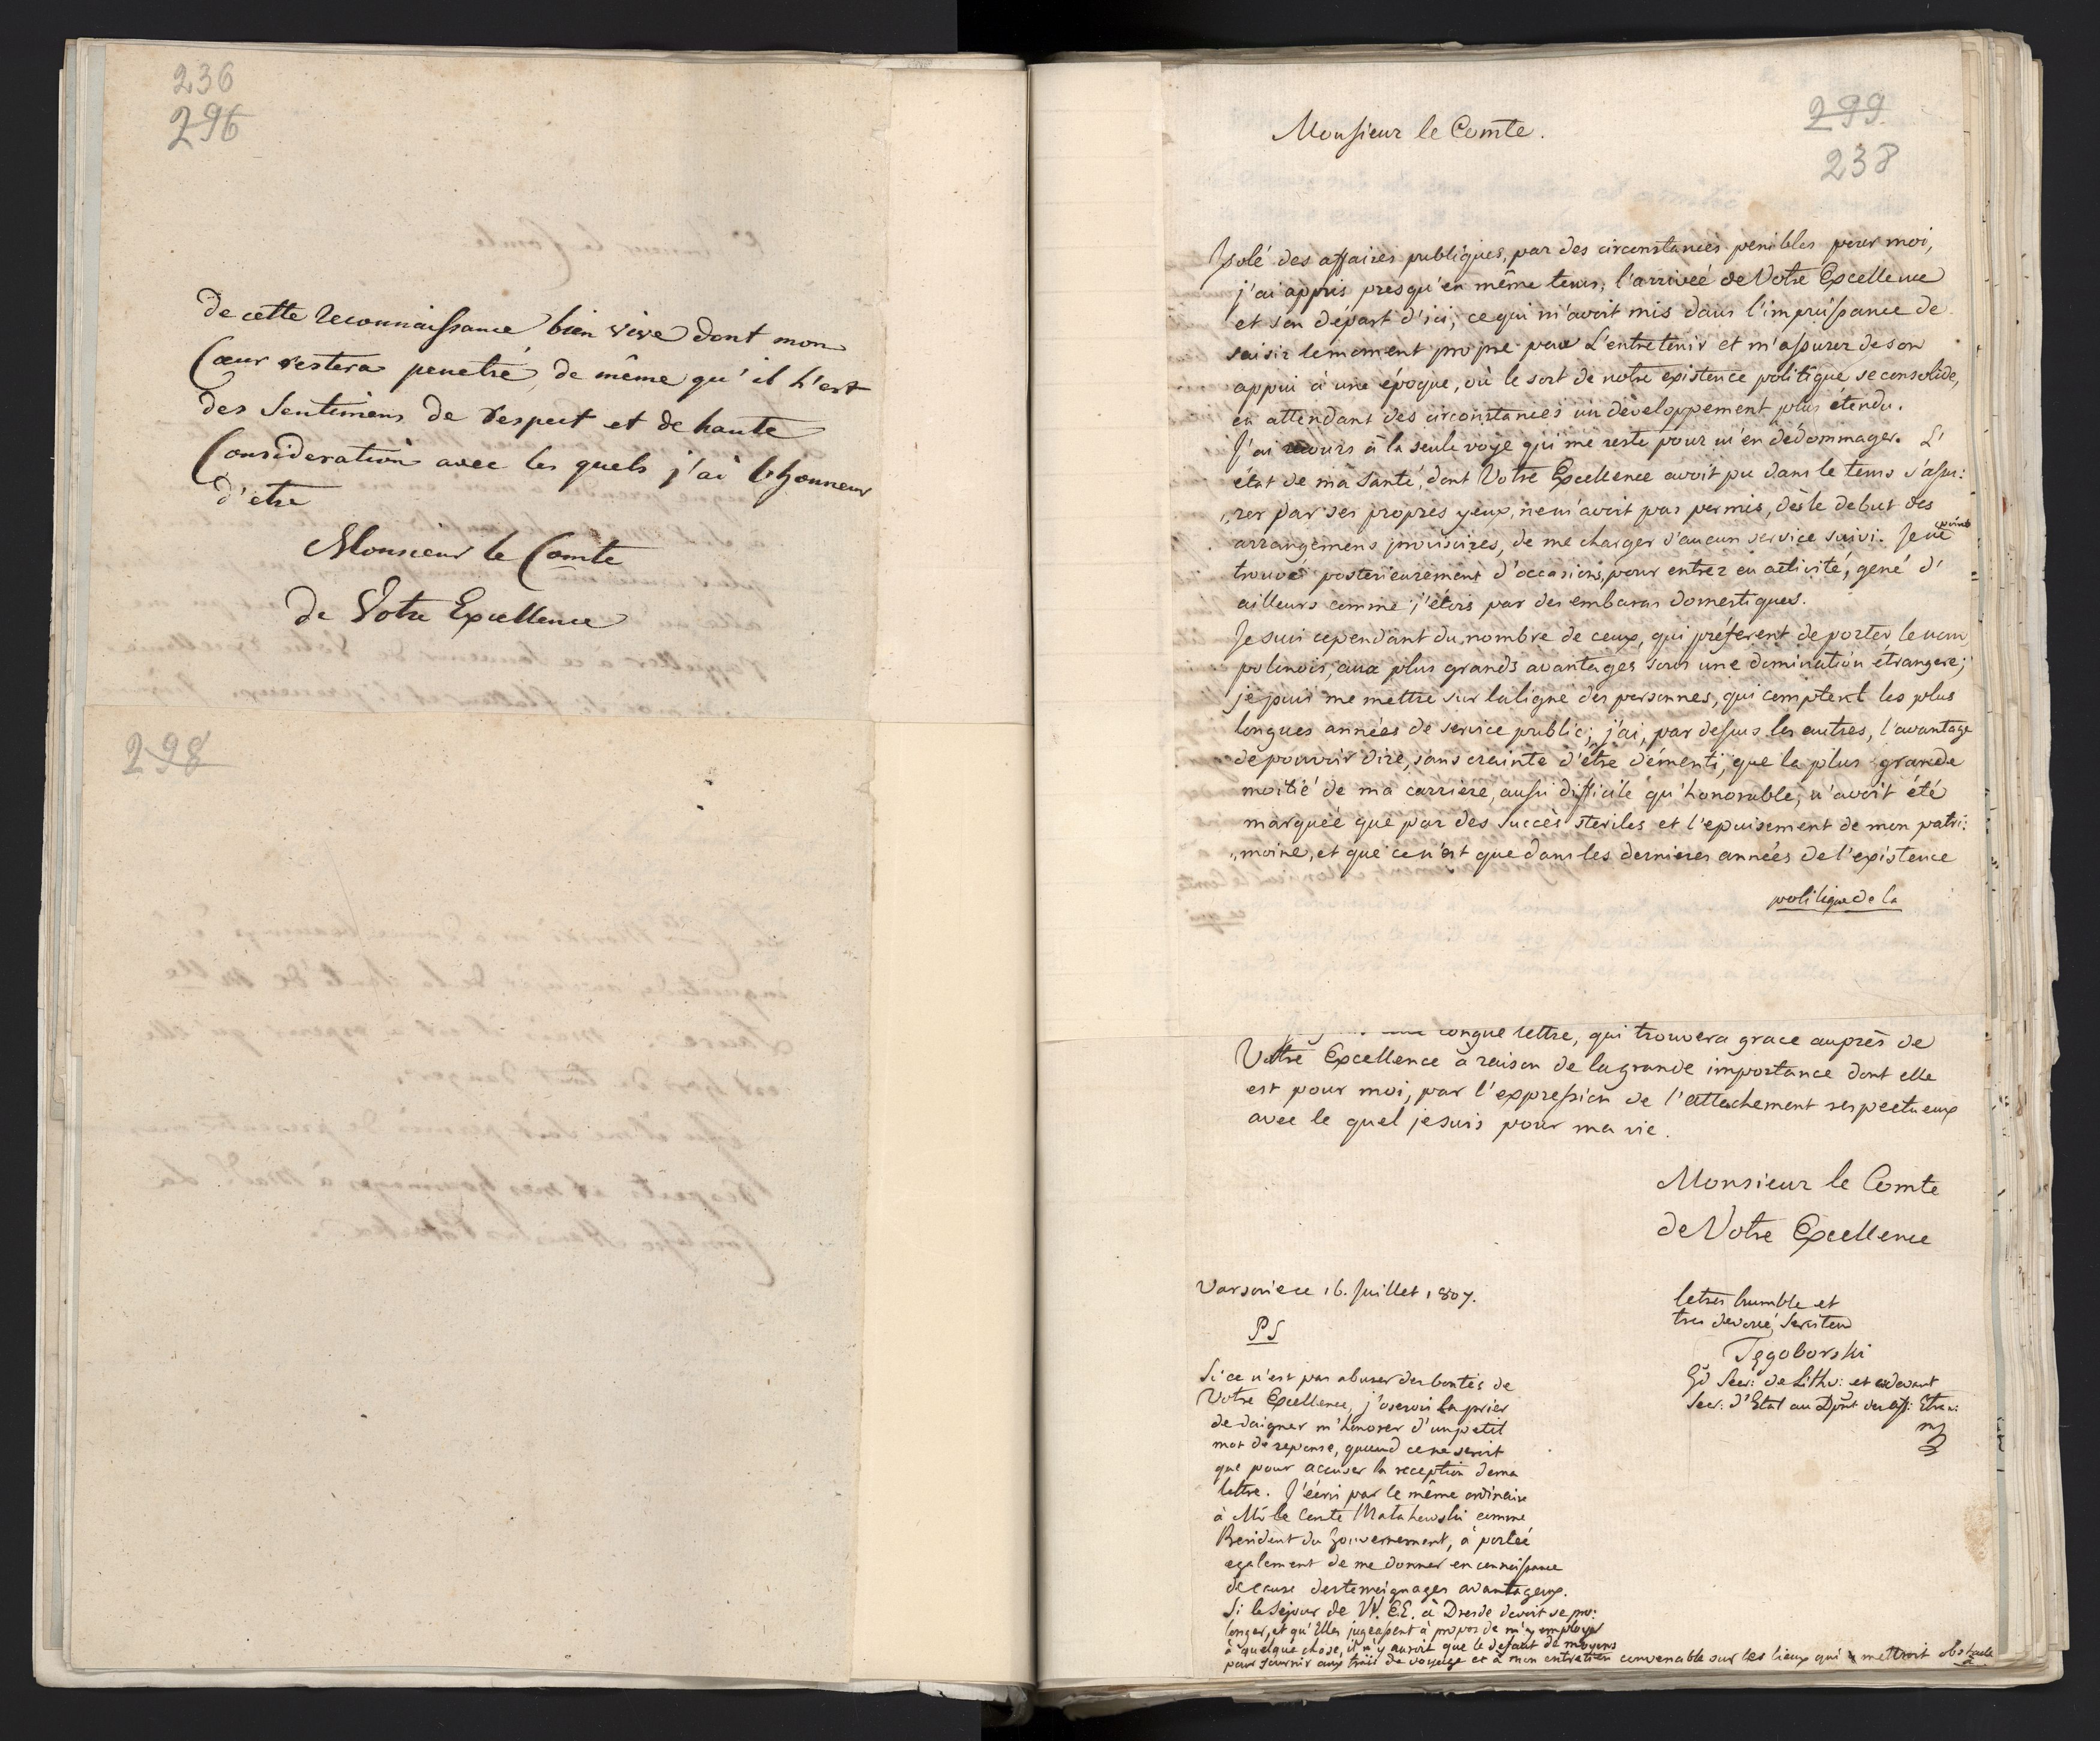 236
296
de cette reconnaissance bien vive dont mon
Cœur restera penetré, de même qu'il l'est
des Sentimens de respect et de haute
Consideration avec les quels j'ai l'honneur
d'etre
Monsieur le Comte
de Votre Excellence
298
Monsieur le Comte.
299
238
Isolé des affaires publiques, par des circonstances penibles pour moi,
j'ai appris presqu'en même tems, l'arriveé de Votre Excellence
et son départ d'ici, ce qui m'avoit mis dans l'impuissance de
saisir le moment propre pour L'entretenir et m'assurer de son
appui à une époque, où le sort de notre existence politique se consolide,
en attendant des circonstances un développement plus étendu.
J'ai recours à la seule voye qui me reste pour m'en dédommager. L'
état de ma santé, dont Votre Excellence avoit pu dans le tems s'assu:
rer par ses propres yeux, ne m'avoit pas permis, dès le debut des
arrangemens provisoires, de me charger d'aucun service suivi. Je ne point
trouvé posterieurement d'occasions, pour entrer en activité, gené d'
ailleurs comme j'étois par des embaras domestiques.
Je suis cependant du nombre de ceux, qui préferent de porter le nom
polonois, aux plus grands avantages sous une domination étrangere;
je puis me mettre sur la ligne des personnes, qui comptent les plus
longues années de service public; j'ai, par dessus les autres, l'avantage
de pouvoir dire, sans crainte d'être démenti, que la plus grande
moitié de ma carriere, aussi difficile qu'honorable, n'avoit été
marqueé que par des succès steriles et l'epuisement de mon patri:
moine, et que ce n'est que dans les dernieres années de l'existence
politique de la
longue lettre, qui trouvera grace auprès de
Votre Excellence à raison de la grande importance dont elle
est pour moi, par l'expression de l'attachement respectueux
avec le quel je suis pour ma vie.
Monsieur le Comte
de Votre Excellence
Varsovie ce 16. Juillet 1807.
le tres humble et
tres devoué Serviteur
Tęgoborski
Gd Secr: de Lithu: et cidevant
Secr: d'Etat au Dpnt des aff: Etra:
mp
PS
Si ce n'est pas abuser des bontés de
Votre Excellence, j'oserois la prier
de daigner m'honorer d'un petit
mot de reponse, quand ce ne seroit
que pour accuser la reception de ma
lettre. J'écris par le même ordinaire
à Mr le Comte Małachowski comme
President du Gouvernement, à porteé
egalement de me donner en connaissance
de cause des temoignages avantageux.
Si le séjour de VV. EE. à Dresde devoit se pro:
longer, et qu'Elles jugeassent à propos de m'y employer
à quelque chose, il n'y auroit que le defaut de moyens
pour fournir aux frais de voyage et à mon entretien convenable sur les lieux qui y mettroit obstacle